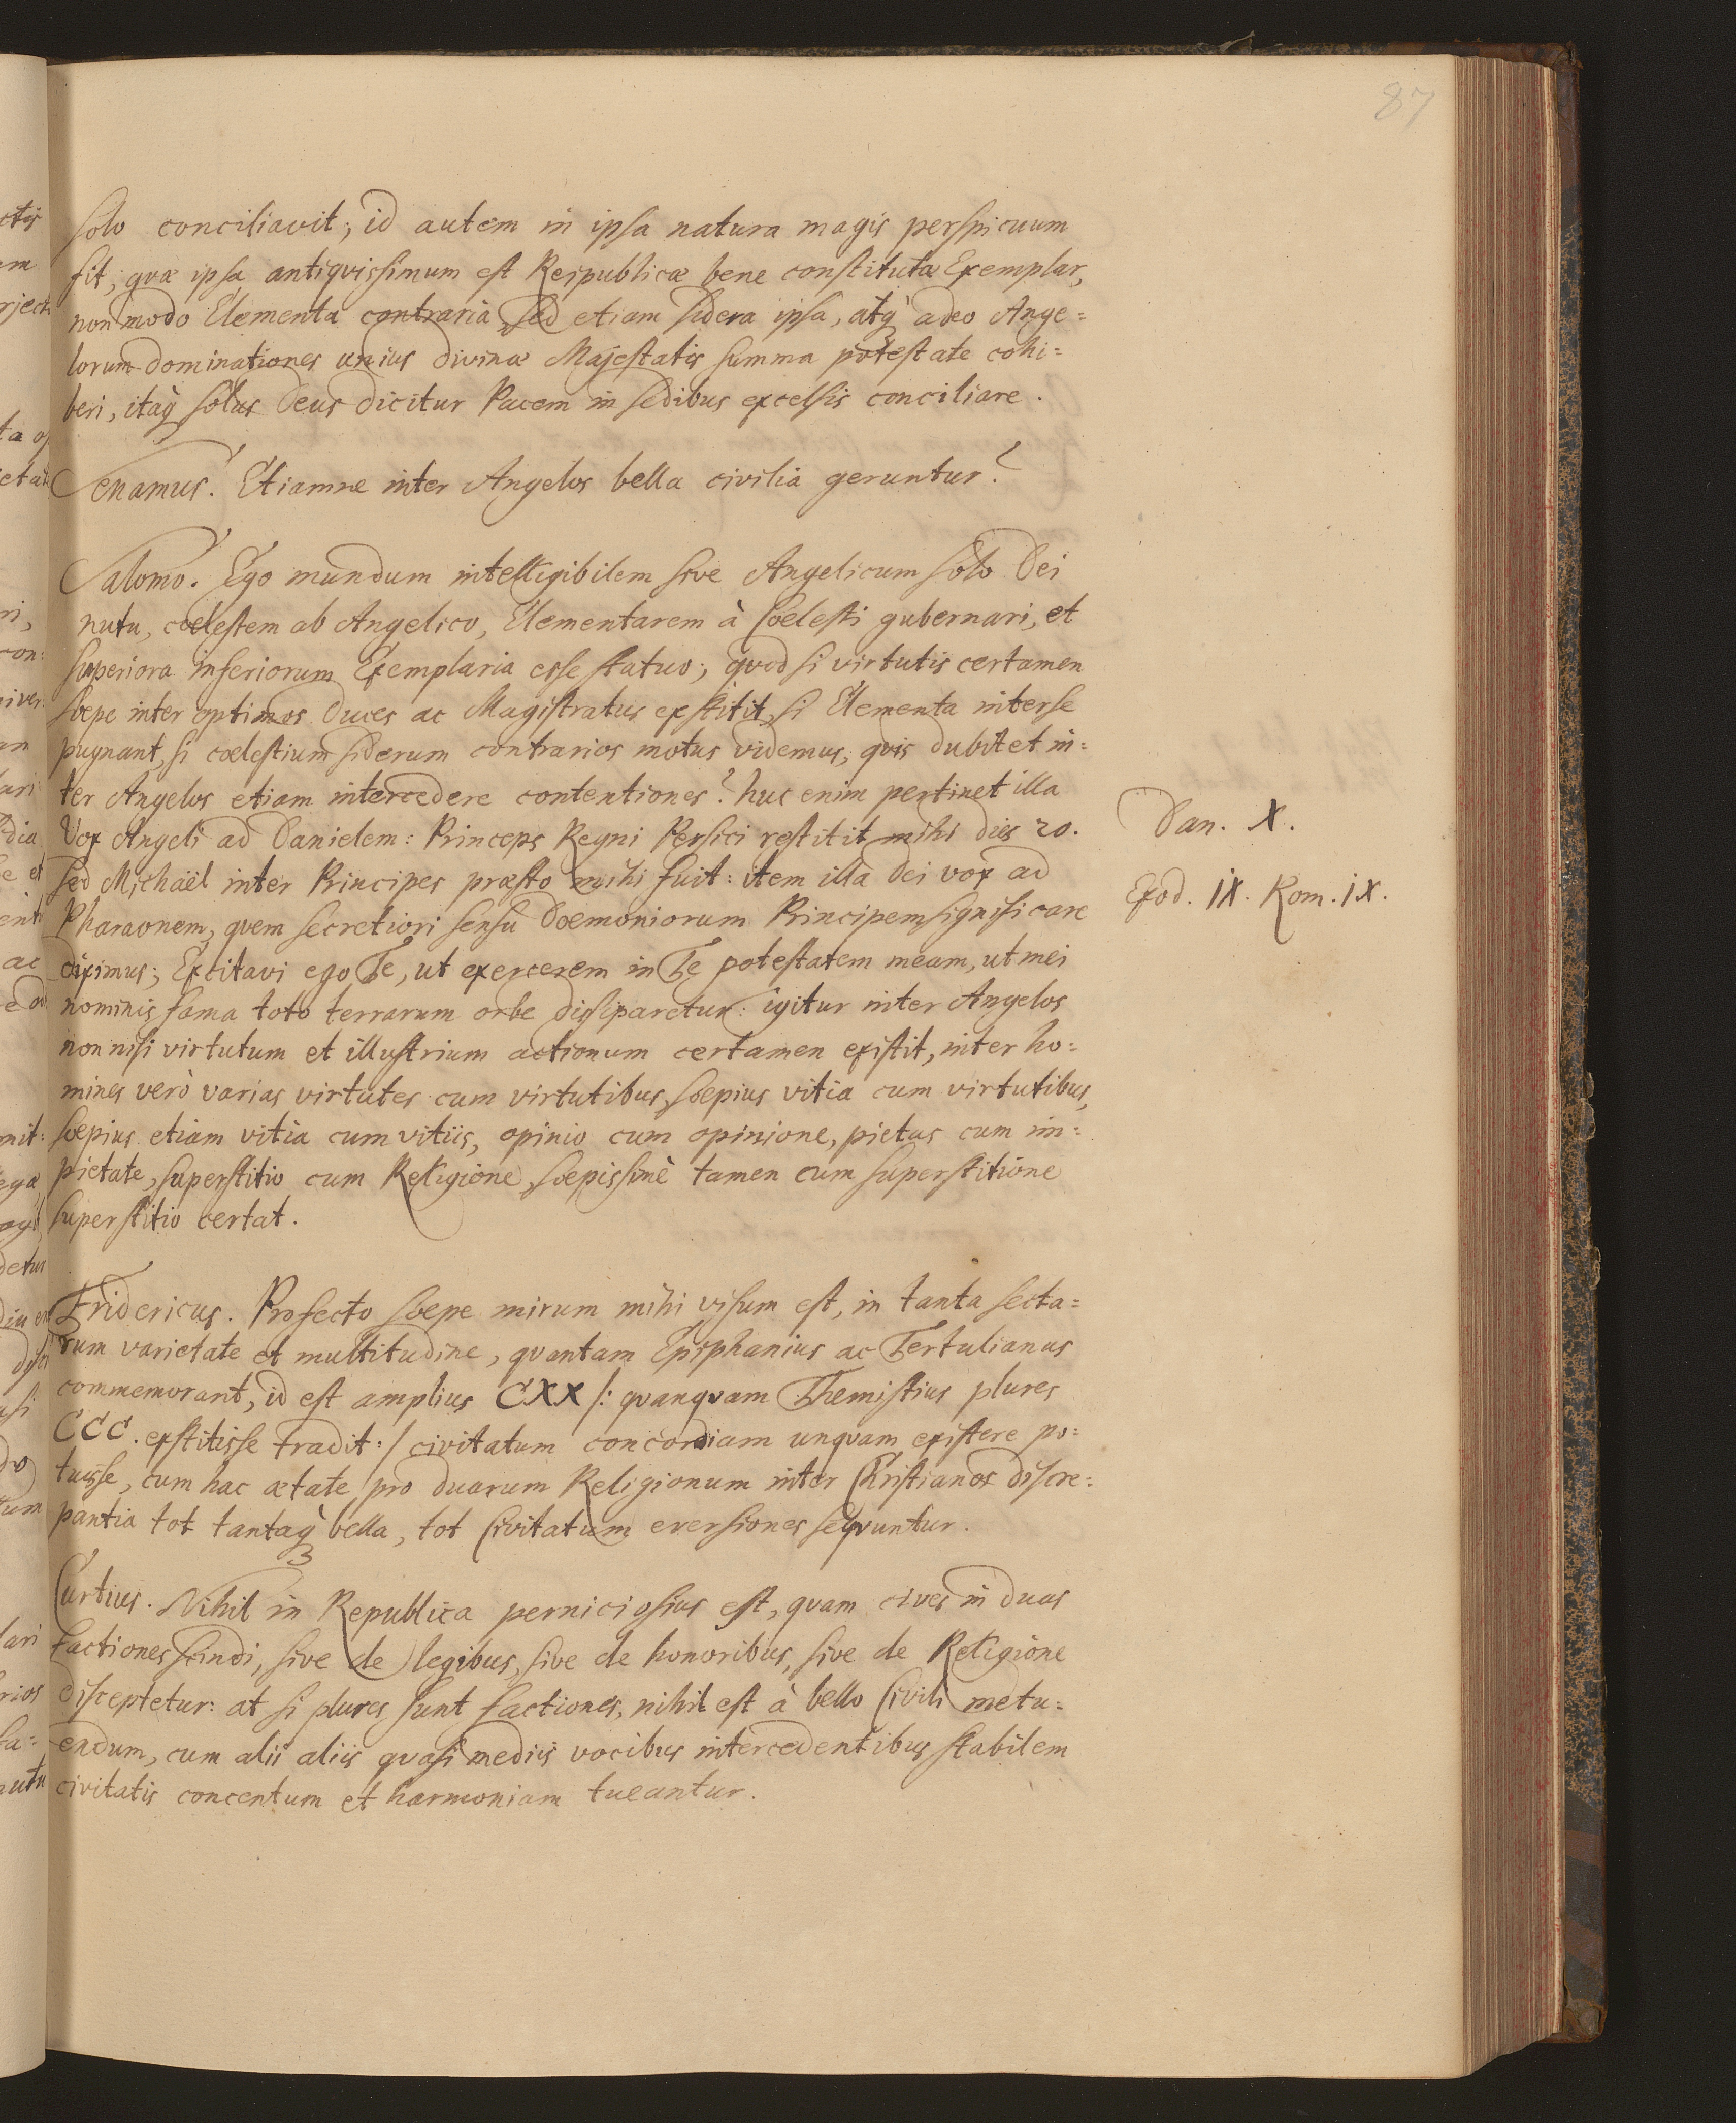 87
solo conciliavit; id autem in ipsa natura magis perspicuum
fit; quæ ipsa antiquissimum est Reipublicæ bene constitutæ Exemplar,
non modo Elementa contraria sed etiam sidera ipsa, atq̀ adeo Ange=
lorum dominationes unius divinæ Majestatis summa potestate cohi=
beri, itaq̀ solus Deus dicitur Pacem in sedibus excelsis conciliare.
Senamus. Etiamne inter Angelos bella civilia geruntur?
Salomo. Ego mundum intelligibilem sive Angelicum solo Dei
nutu, cœlestem ab Angelico, Elementarem à Cœlesti gubernari, et
superiora inferiorum Exemplaria esse statuo; quod si virtutis certamen
sœpe inter optimos Duces ac Magistratus exstitit, si Elementa inter se
pugnant, si cœlestium siderum contrarios motus videmus, quis dubitet in=
ter Angelos etiam intercedere contentiones? huc enim pertinet illa
Vox Angeli ad Danielem: Princeps Regni Persici restitit mihi dies 20.
Dan. X.
sed Michaël inter Principes præsto mihi fuit: item illa Dei vox ad
Exod. IX. Rom. IX.
Pharaonem, quem secretiori sensu Dœmoniorum Principem significare
diximus; Excitavi ego Te, ut exercerem in Te potestatem meam, ut mei
nominis fama toto terrarum orbe dissiparetur: igitur inter Angelos
non nisi virtutum et illustrium actionum certamen existit, inter ho=
mines verò varias virtutes cum virtutibus, sœpius vitia cum virtutibus,
sœpius etiam vitia cum vitiis, opinio cum opinione, pietas cum im=
pietate, superstitio cum Religione, sœpissimè tamen cum superstitione
superstitio certat.
Fridericus. Profecto sœpe mirum mihi visum est, in tanta secta=
rum varietate et multitudine, quantam Epiphanius ac Tertulianus
commemorant, id est amplius CXX /: quanquam Themistius plures
CCC. exstitisse tradit :/ civitatum concordiam unquam existere po=
tuisse, cum hac ætate pro duarum Religionum inter Christianos discre=
pantia tot tantaq̀ bella, tot Civitatum eversiones sequuntur.
Curtius. Nihil in Republica perniciosius est, quam cives in duas
factiones scindi, sive de legibus, sive de honoribus, sive de Religione
disceptetur: at si plures sunt factiones, nihil est à bello Civili metu=
endum, cum alii aliis quasi mediis vocibus intercedentibus stabilem
civitatis concentum et harmoniam tueantur.